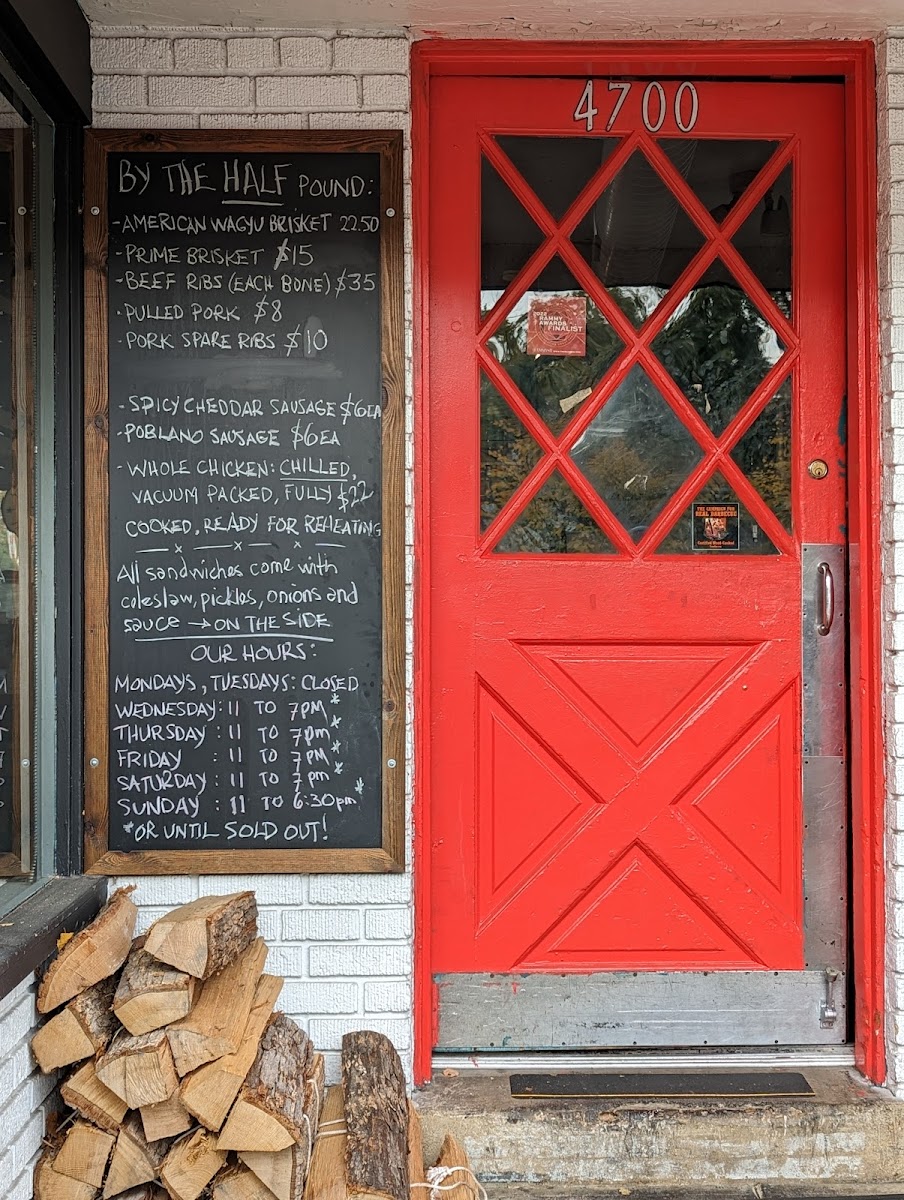 4700
BY THE HALF POUND:
-AMERICAN WAGYU BRISKET 22.50
-PRIME BRISKET $15
-BEEF RIBS (EACH BONE) $35
-PULLED PORK $8
-PORK SPARE RIBS $10
-SPICY CHEDDAR SAUSAGE $6EA
-POBLANO SAUSAGE $6EA
-WHOLE CHICKEN: CHILLED,
VACUUM PACKED, FULLY $22
COOKED, READY FOR REHEATING
All sandwiches come with
coleslaw, pickles, onions and
sauce → ON THE SIDE
OUR HOURS:
MONDAYS, TUESDAYS: CLOSED
WEDNESDAY: 11 TO 7PM*
THURSDAY : 11 TO 7pm*
FRIDAY : 11 TO 7PM*
SATURDAY : 11 TO 7pm*
SUNDAY : 11 TO 6:30pm*
*OR UNTIL SOLD OUT!
2022
RAMMY
AWARDS
FINALIST
THE CAMPAIGN FOR
REAL BARBECUE
Certified Wood-Cooked